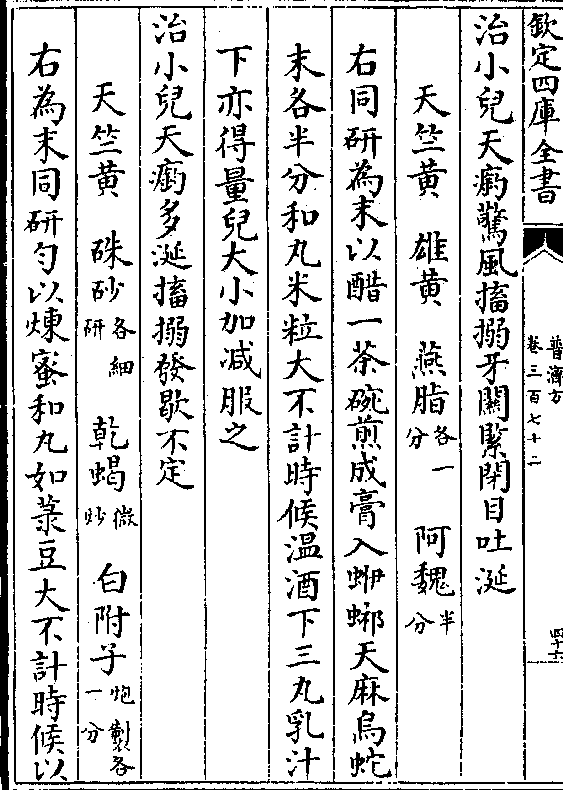 欽定四庫全書
普濟方
卷三百七十二
四十六
治小兒天癇驚風搐搦牙關緊閉目吐涎
天竺黄 雄黄 燕脂各一分 阿魏半分
右同研為末以醋一茶碗煎成膏入蝍蜋天麻烏蛇
末各半分和丸米粒大不計時候温酒下三丸乳汁
下亦得量兒大小加减服之
治小兒天癇多涎搐搦發歇不定
天竺黄 硃砂各細研 乾蝎微炒 白附子炮製各一分
右為末同研匀以煉蜜和丸如菉豆大不計時候以